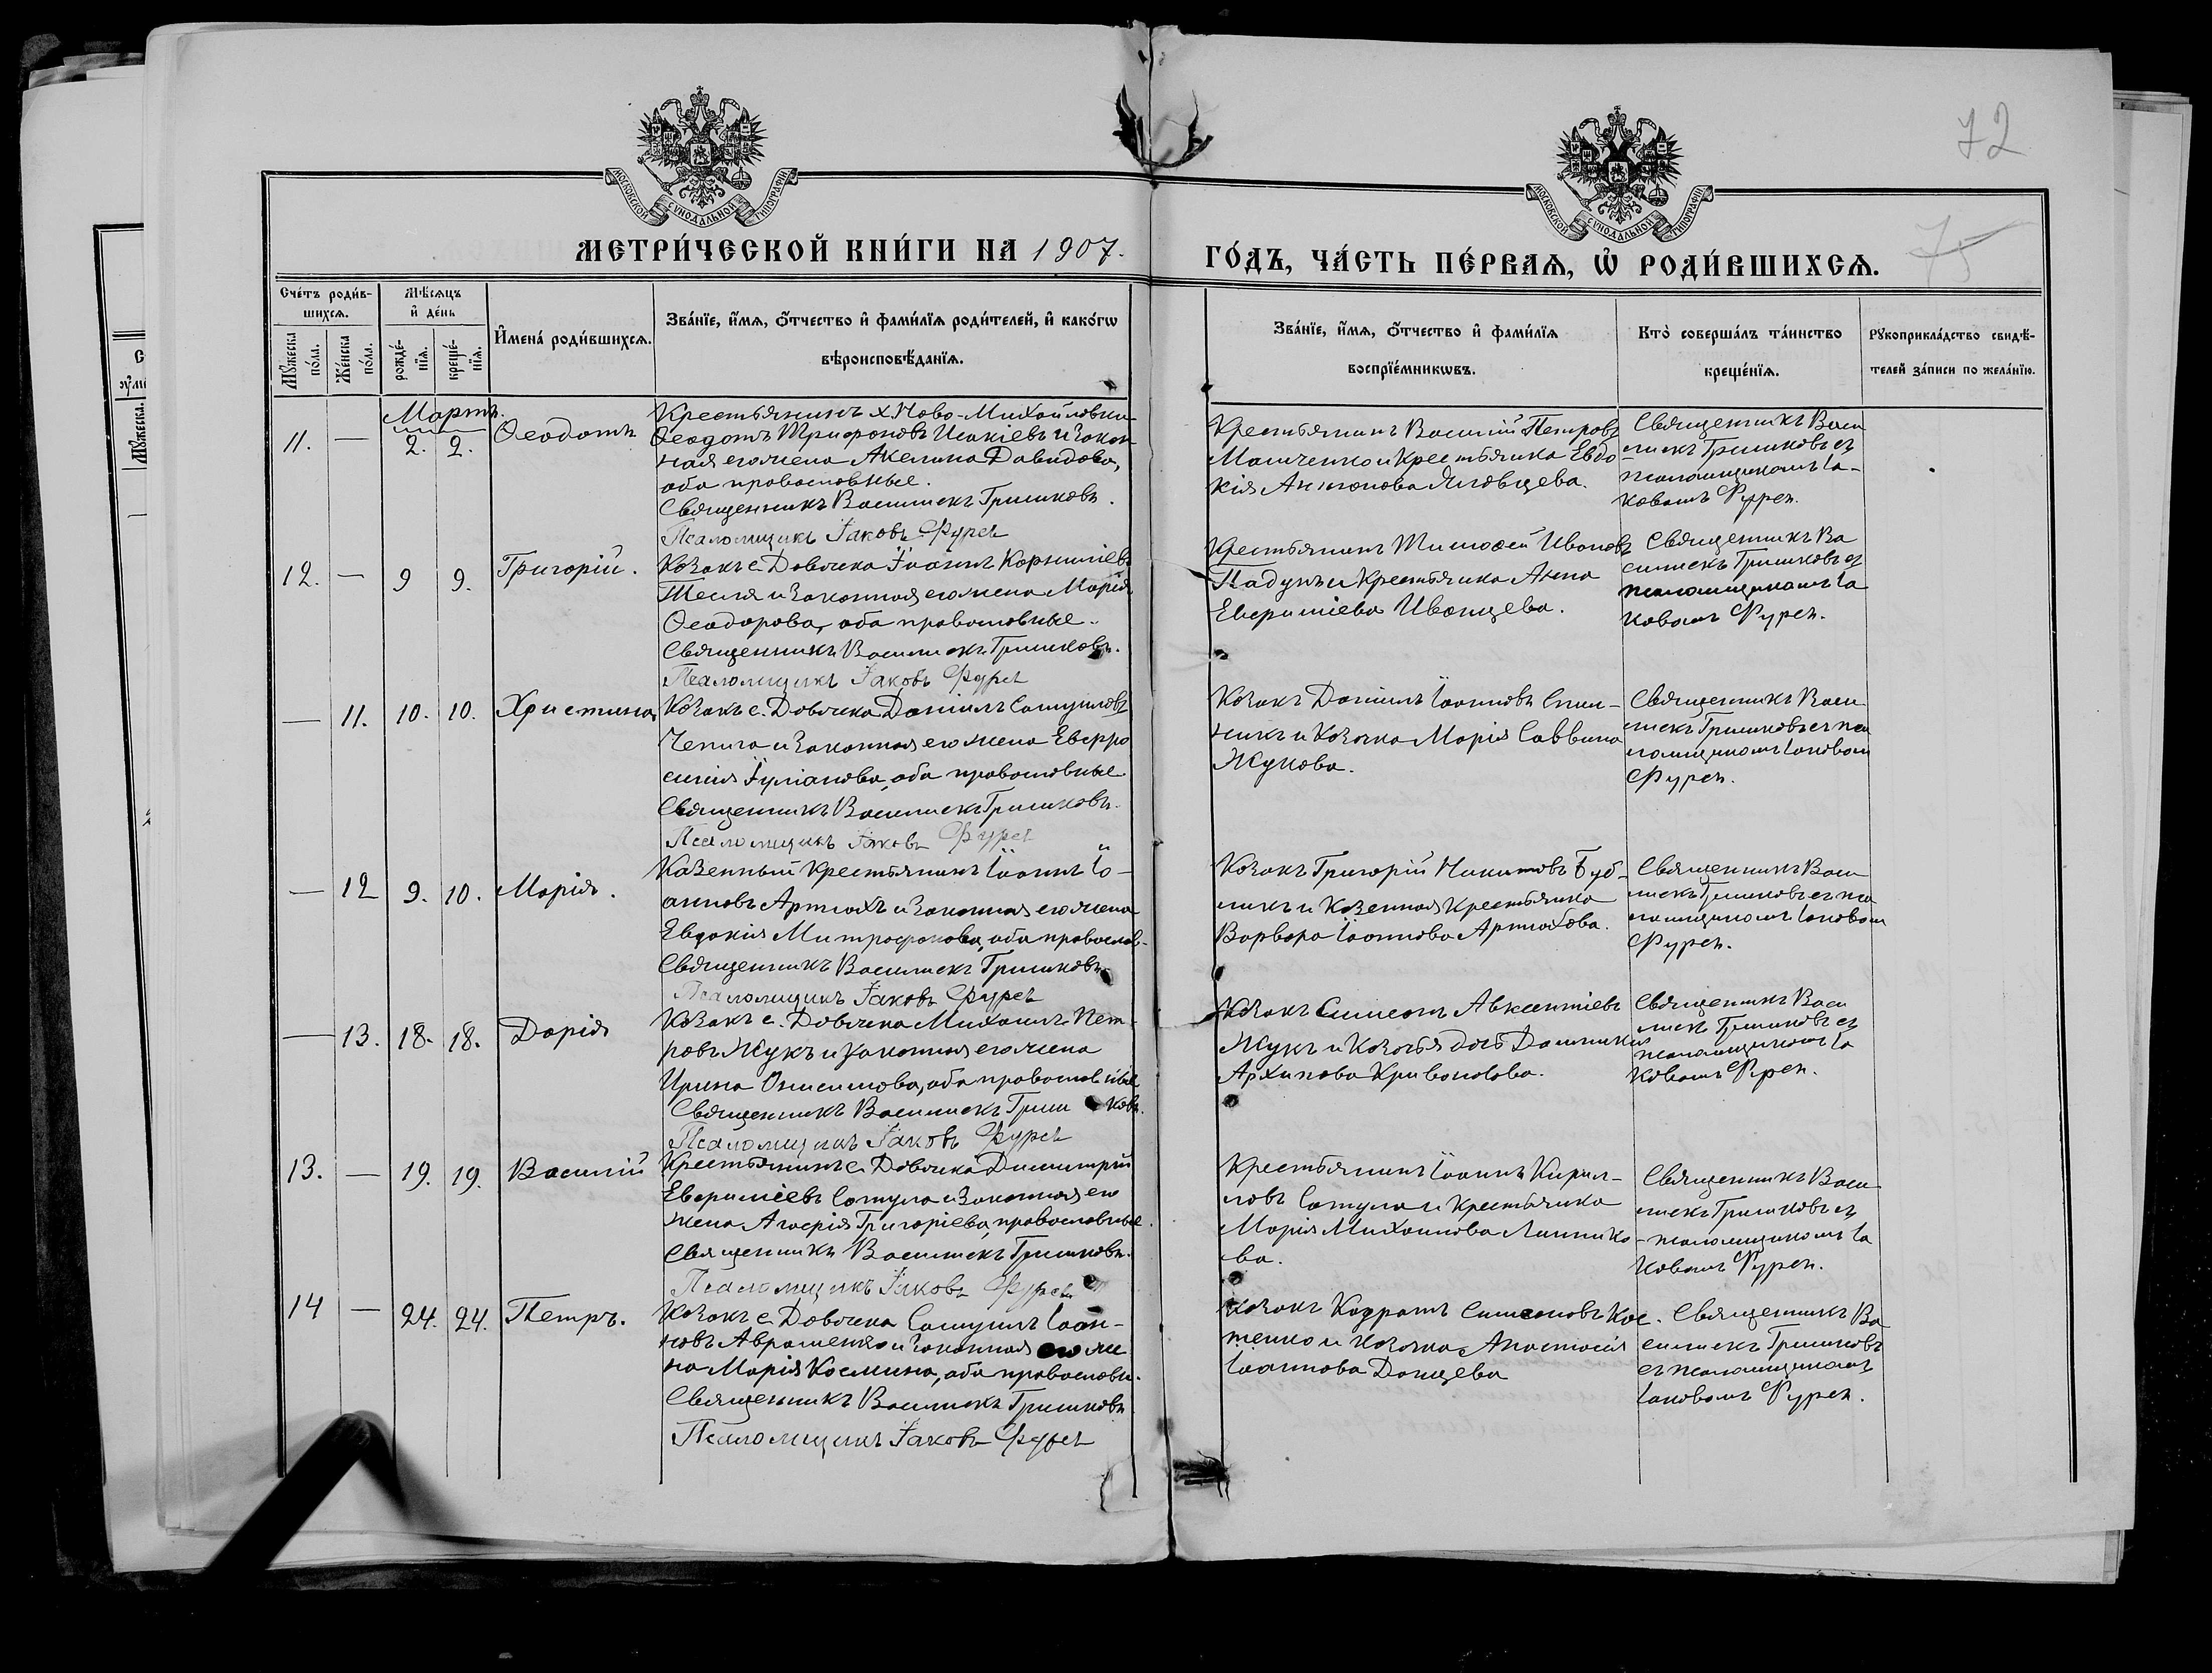 72
75
МОСКОВСКОЙ СУНОДАЛЬНОЙ ТИПОГРАФІИ
МОСКОВСКОЙ СУНОДАЛЬНОЙ ТИПОГРАФІИ
МЕТРИ́ЧЕСКОЙ КНИ́ГИ НА 1907.
ГО́ДЪ, ЧА́СТЬ ПЕ́РВАѦ, Ѽ РОДИ́ВШИХСѦ.
Сче́тъ роди́в-
шихсѧ.
Мꙋ́жеска по́ла.
Же́нска по́ла.
Мѣ́сѧцъ
и҆ де́нь
рожде́-
нїѧ.
креще́-
нїѧ.
И҆мена̀ роди́вшихсѧ.
Зва́нїе, и҆́мѧ, ѻ҆́тчество и҆ фами́лїѧ роди́телей, и҆ како́гѡ
вѣроисповѣ́данїѧ.
Зва́нїе, и҆́мѧ, ѻ҆́тчество и҆ фами́лїѧ
воспрїе́мникѡвъ.
Кто̀ соверша́лъ та́инство
креще́нїѧ.
Рꙋкоприкла́дство свидѣ́-
телей за́писи по жела́нїю.
Мартъ.
11. — 2. 2. Ѳеодотъ
Крестьянинъ х. Ново-Михайловки
Ѳеодотъ Трифоновъ Исакіевъ и закон
ная его жена Акелина Давидова,
оба православные.
Священникъ Василискъ Гришковъ.
Псаломщикъ Іаковъ Фурсъ
Крестьянинъ Василій Петровъ
и крестьянка Евдо
кія Антонова
Священникъ Васи
лискъ Гришковъ съ
псаломщикомъ Іа-
ковомъ Фурсъ.
12. — 9 9. Григорій.
Козакъ с. Довжика Іоаннъ Корниліевъ
Тесля и законная его жена Марія
Ѳеодорова, оба православные.
Священникъ Василискъ Гришковъ.
Псаломщикъ Іаковъ Фурсъ
Крестьянинъ Тимоѳей Ивановъ
Падунъ и крестьянка Анна
Евфиміева Иванцева.
Священникъ Ва
силискъ Гришковъ съ
псаломщикомъ Іа
ковомъ Фурсъ.
— 11. 10. 10. Христина
Козакъ с. Довжика Даніилъ Самуиловъ
Чепига и законная его жена Евфро
синія Іуліанова, оба православные
Священникъ Василискъ Гришковъ.
Псаломщикъ Іаковъ Фурсъ
Козакъ Даніилъ Іоанновъ
и козачка Марія Саввина
Жукова.
Священникъ Васи
лискъ Гришковъ съ пса
ломщикомъ Іаковом
Фурсъ.
— 12 9. 10. Марія.
Казенный крестьянинъ Іоаннъ Іо-
анновъ Артюхъ и законная его жена
Евдокія Митрофанова, оба православ-
Священникъ Василискъ Гришковъ.
Псаломщикъ Іаковъ Фурсъ
Козакъ Григорій Никитовъ Буб-
ликъ и казенная крестьянка
Варвара Іоаннова Артюхова.
Священникъ Васи
лискъ Гришковъ съ пса
ломщикомъ Іаковом
Фурсъ.
— 13. 18. 18. Дарія
Козакъ с. Довжика Михаилъ Пет-
ровъ Жукъ и законная его жена
Ирина Онисимова, оба православные
Священникъ Василискъ Гришковъ.
Псаломщикъ Іаковъ Фурсъ
Козакъ Симеонъ Авксентіевъ
Жукъ и козачья дочь Домникія
Архипова
Священникъ Васи
лискъ Гришковъ съ
псаломщикомъ Іа
ковомъ Фурсъ.
13. — 19. 19. Василій
Крестьянинъ с. Довжика Димитрій
Евфиміевъ Сотула и законная его
жена Агафія Григоріева, православные.
Священникъ Василискъ Гришковъ.
Псаломщикъ Іаковъ Фурсъ
Крестьянинъ Іоаннъ Кирил-
ловъ Сотула и крестьянка
Марія Михаилова
ва.
Священникъ Васи
лискъ Гришковъ съ
псаломщикомъ Іа
ковомъ Фурсъ.
14 — 24. 24. Петръ.
Козакъ с. Довжика Самуилъ Іоан-
новъ Авраменко и законная его же
на Марія Космина, оба православн.
Священникъ Василискъ Гришковъ
Псаломщикъ Іаковъ Фурсъ
Козакъ Кодратъ Симеоновъ Кос-
тенко и козачка Анастасія
Іоаннова Донцева
Священникъ Ва
силискъ Гришковъ
съ псаломщикомъ
Іаковомъ Фурсъ.